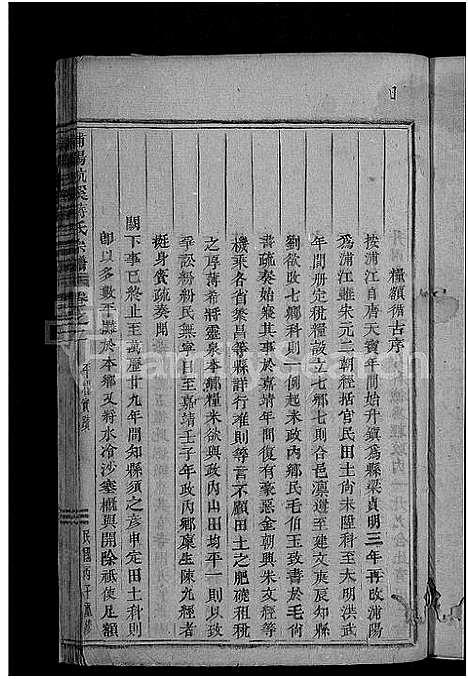 糧額循古序
按浦江自唐天寶年間始升鎮爲縣梁貞明三年再改浦陽
爲浦江雖宋元二朝經括官民田土尚未陞科至大明洪武
年間册定稅糧設立七鄉七則合邑凛遵至建文庚辰知縣
劉欲改七鄉科則一例起未政內鄉民毛伯玉致書於毛尚
書疏奏始寢其事於嘉靖年間復有豪惡金朝興朱文經等
機乘各省繁昌等縣詳行难則等言不顧田土之肥磽租稅
之厚薄希將靈泉本鄉糧米欲與政內山田均平一則以致
爭訟粉粉民無寧日至嘉靖壬子年政內鄉凛生陳九經者
挺身實疏奏聞
闕下事已終止至萬厯廿九年間知縣須之彥申定田土科則
卽以多數平灘於本鄉及將水冷沙塞槪與開除祗使足額
浦陽
氏宗譜
卷之一
民國丙子